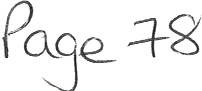 Page 78